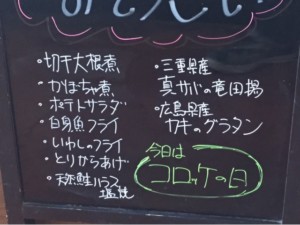 ・切干大根煮
・かぼちゃ煮
・ポテトサラダ
・白身魚フライ
・いわしのフライ
・とりからあげ
・天然鮭ハラス
塩焼
・三重県産
真サバの竜田揚
・広島県産
カキのグラタン
今日は
コロッケの日